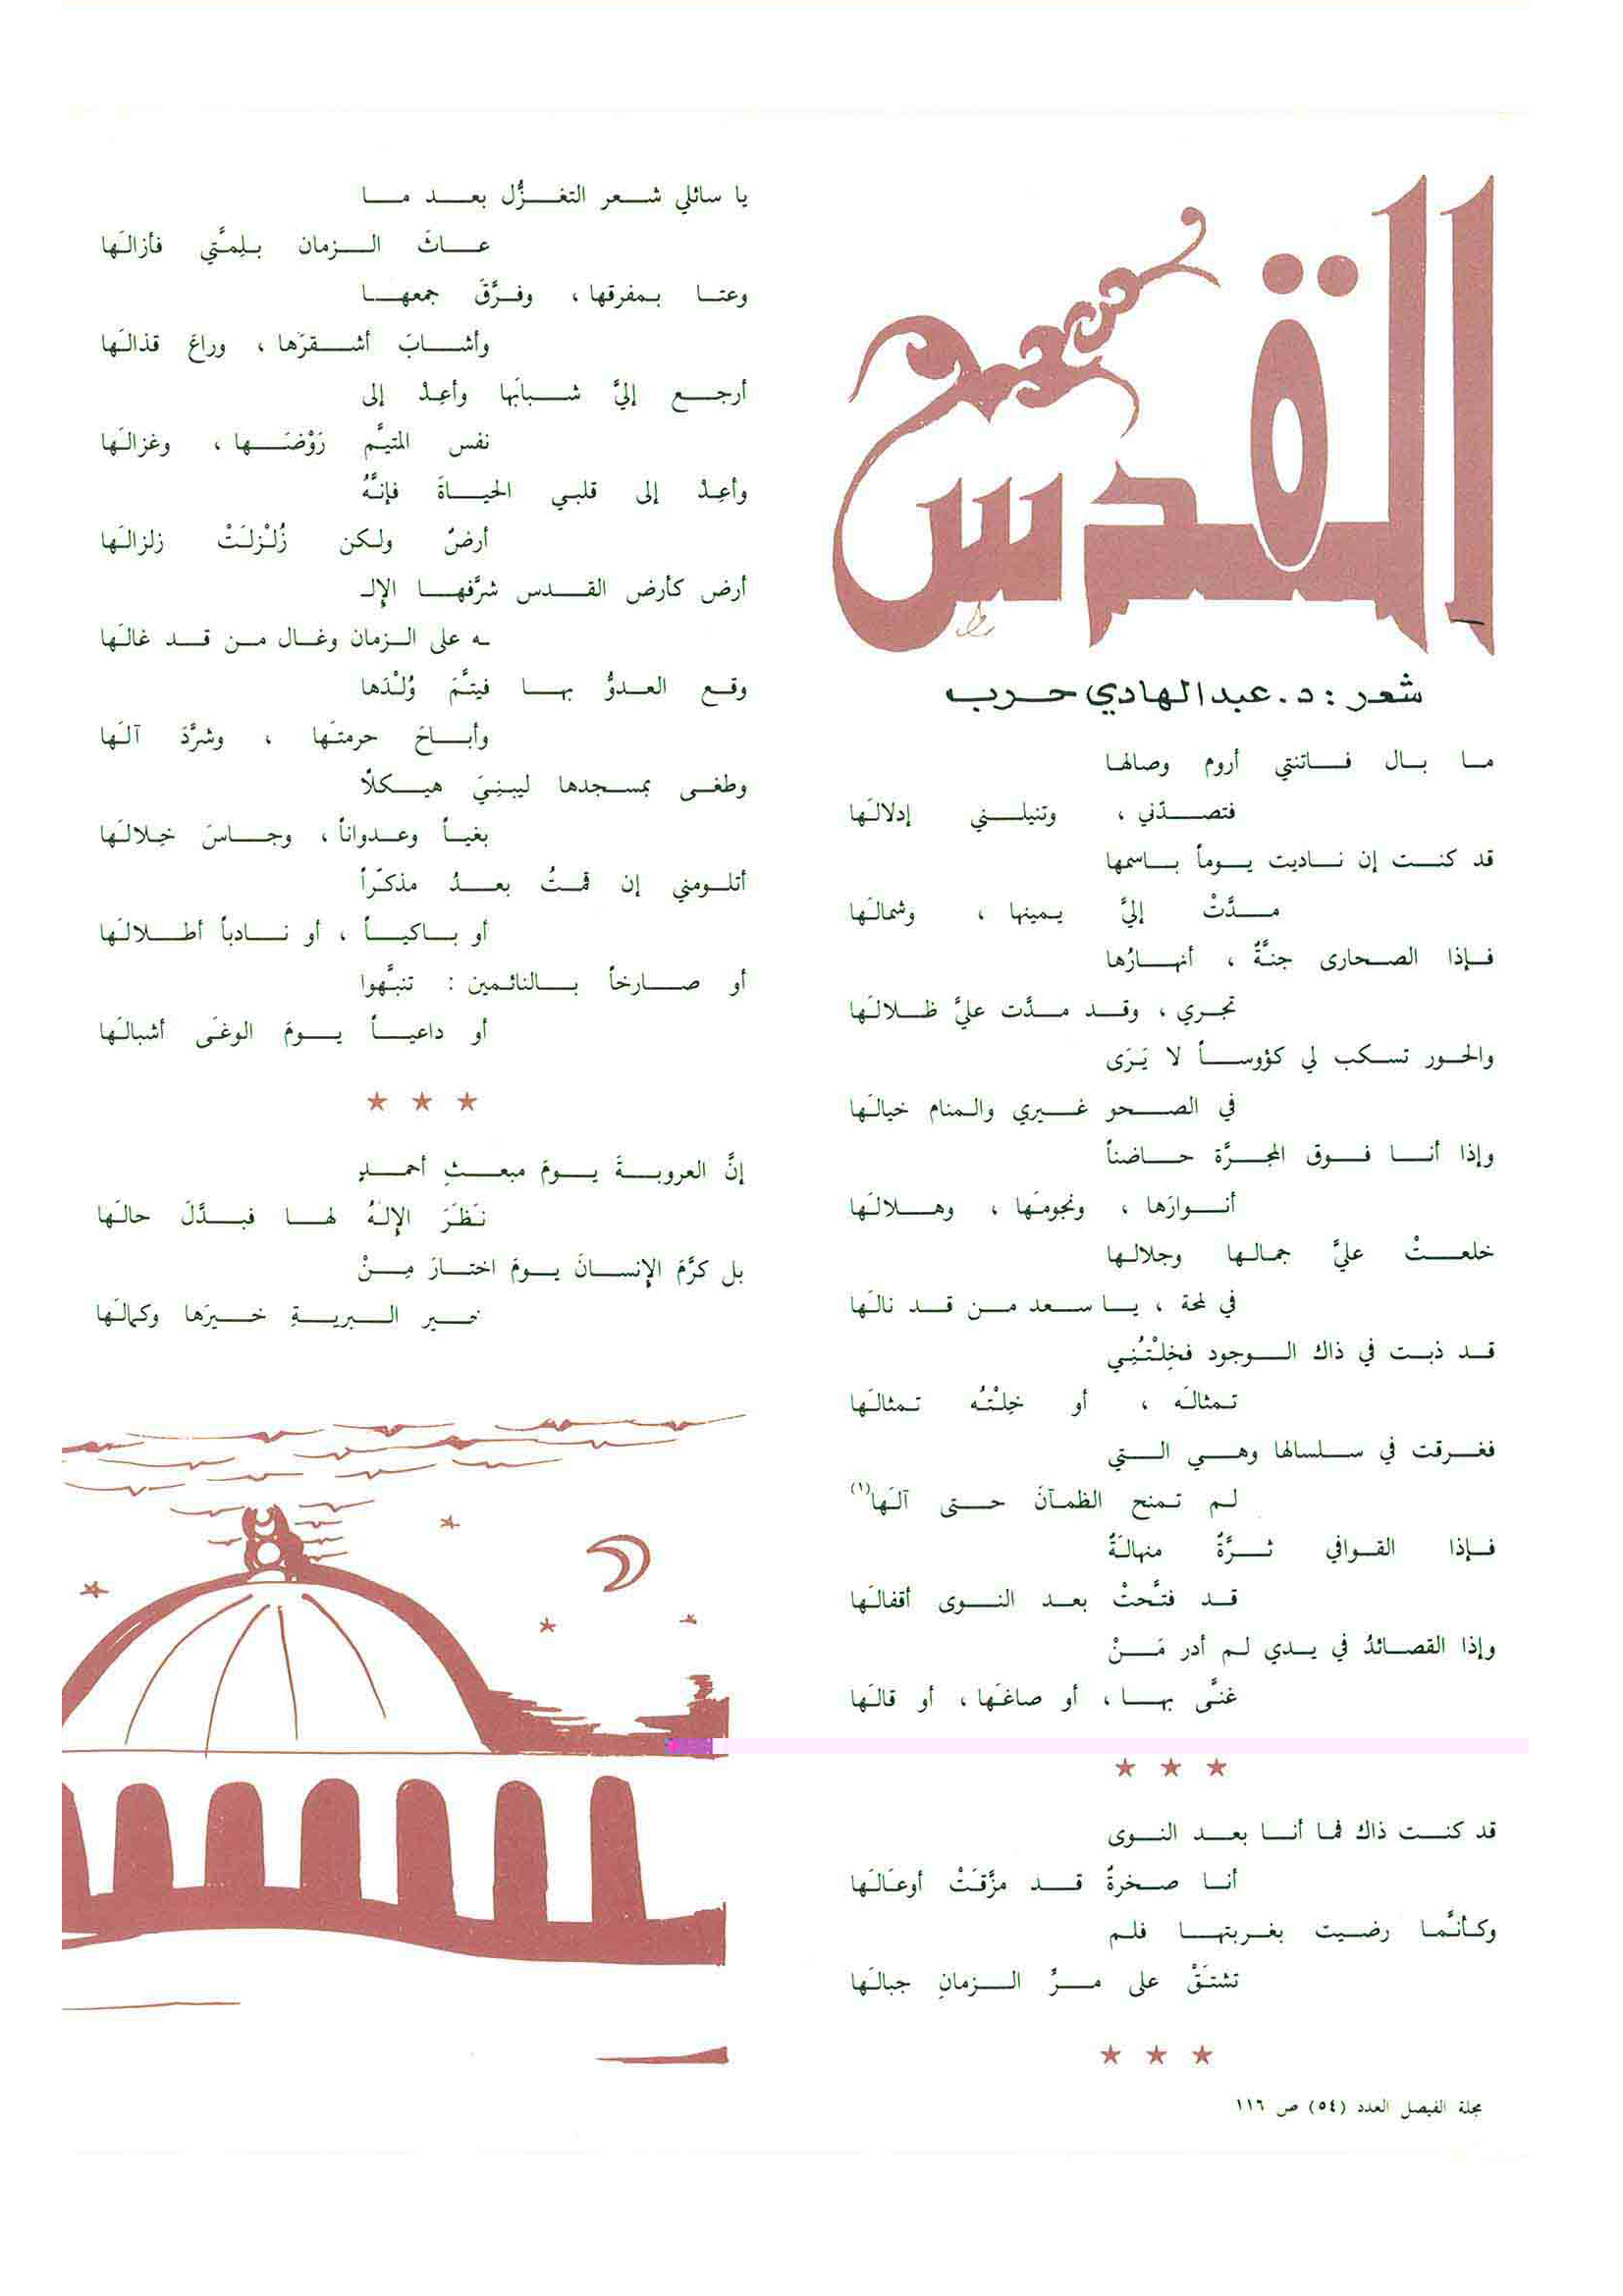 القدس
شعر : د. عبد الهادي حرب
ما بال فاتنتي أروم وصالها
فتصدّني ، وتنيلني إدلالَها
قد كنت إن ناديت يوماً باسمها
مدَّتْ إليَّ يمينها ، وشمالَها
فإذا الصحارى جنةٌ ، أنهارُها
تجري ، وقد مدَّت عليَّ ظلالَها
والحور تسكب لي كؤوساً لا يَرَى
في الصحو غيري والمنام خيالَها
وإذا أنا فوق المجرَّة حاضناً
أنوارَها ، ونجومَها ، وهلالَها
خلعتْ عليَّ جمالها وجلالها
في لمحة ، يا سعد من قد نالَها
قد ذبت في ذاك الوجود فخِلْتُنِي
تمثالَه ، أو خِلْتُه تمثالَها
فغرقت في سلسالها وهي التي
لم تمنح الظمآنَ حتى آلَها(١)
فإذا القوافي ثرَّةٌ منهالةٌ
قد فتَّحتْ بعد النوى أقفالَها
وإذا القصائدُ في يدي لم أدر مَنْ
غنَّى بها ، أو صاغَها ، أو قالَها
★ ★ ★
قد كنت ذاك فما أنا بعد النوى
أنا صخرةٌ قد مزَّقتْ أوعَالَها
وكأنَّما رضيت بغربتها فلم
تشتَقْ على مرِّ الزمانِ جبالَها
★ ★ ★
يا سائلي شعر التغزُّل بعد ما
عاثَ الزمان بلِمَّتي فأزالَها
وعتا بمفرقها ، وفرَّقَ جمعها
وأشابَ أشقرَها ، وراعَ قذالَها
أرجع إليَّ شبابَها وأعِدْ إلى
نفس المتيَّم رَوْضَها ، وغزالَها
وأعِدْ إلى قلبي الحياةَ فإنَّهُ
أرضٌ ولكن زُلْزلَتْ زلزالَها
أرض كأرض القدس شرَّفها الإلـ
ـه على الزمان وغال من قد غالَها
وقع العدوُّ بها فيتَّمَ وُلْدَها
وأباحَ حرمتَها ، وشرَّدَ آلَها
وطغى بمسجدها ليبنِيَ هيكلاً
بغياً وعدواناً ، وجاسَ خِلالَها
أتلومني إن قمتُ بعدُ مذكّراً
أو باكياً ، أو نادباً أطلالَها
أو صارخاً بالنائمين : تنبَّهوا
أو داعياً يومَ الوغَى أشبالَها
★ ★ ★
إنَّ العروبةَ يومَ مبعثِ أحمدٍ
نَظَرَ الإلهُ لها فبدَّلَ حالَها
بل كرَّمَ الإنسانَ يومَ اختارَ مِنْ
خير البريةِ خيرَها وكمالَها
مجلة الفيصل العدد (٥٤) ص ١١٦